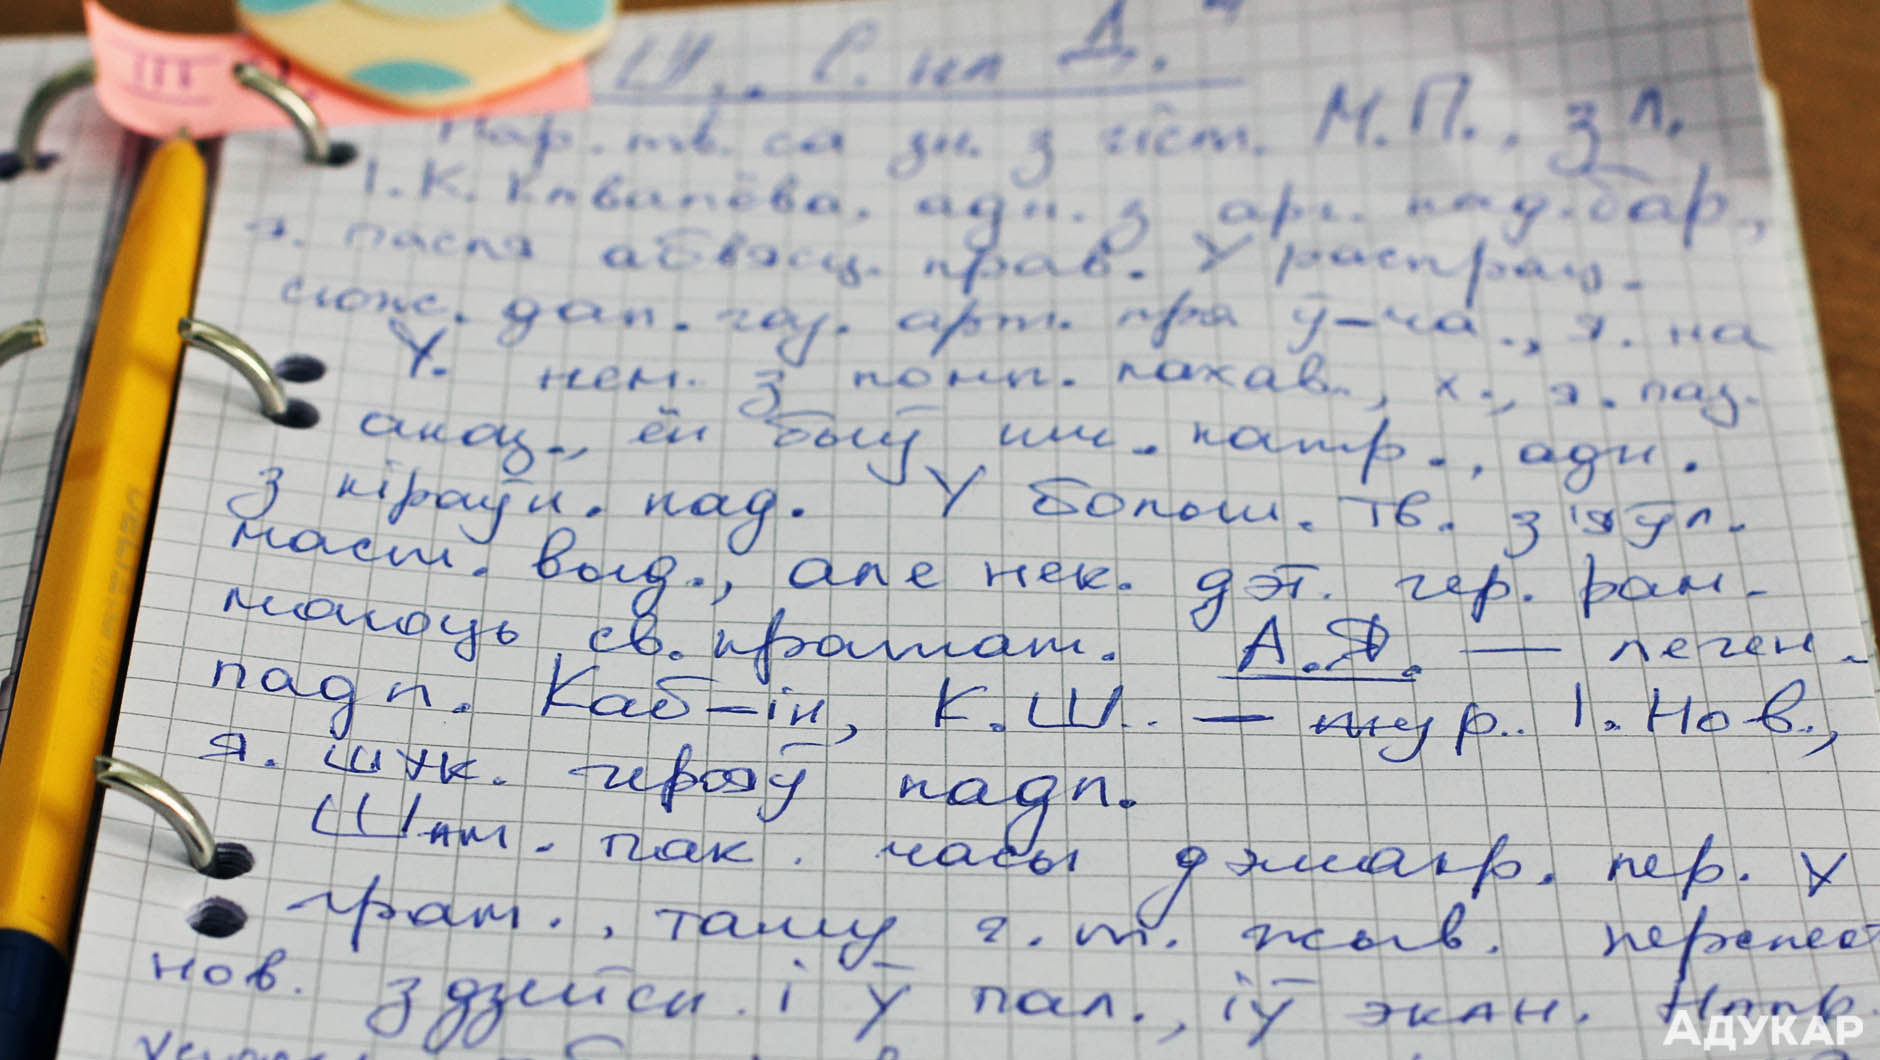 III
Ш. С. на Д."
Нар. тв. са зн. з гіст. М.П., з л.
І. К. адн. з арг. пад. бар,
я. пасля абвясц. прав. У распрац.
сюж. дап. газ. арт. пра ў-ча, я. на
У. нем. з помп. пахав., х., я. паз.
аказ., ён быў им. патр., адн.
з кіраўн. пад. У больш. тв. з'яўл.
маст. выд., але нек. дэт. гер. рам.
малоць св. пратат. А.Я. — леген.
падп. Каб-ін, К.Ш. — жур. І. Нов.,
я. шук. герояў падп.
Шмт. пак. часы дэмакр. пер. у
грам., таму г. т. жыв. переспект
нов. здзейсн. і ў пал., і ў экан. Напр.
АДУКАР